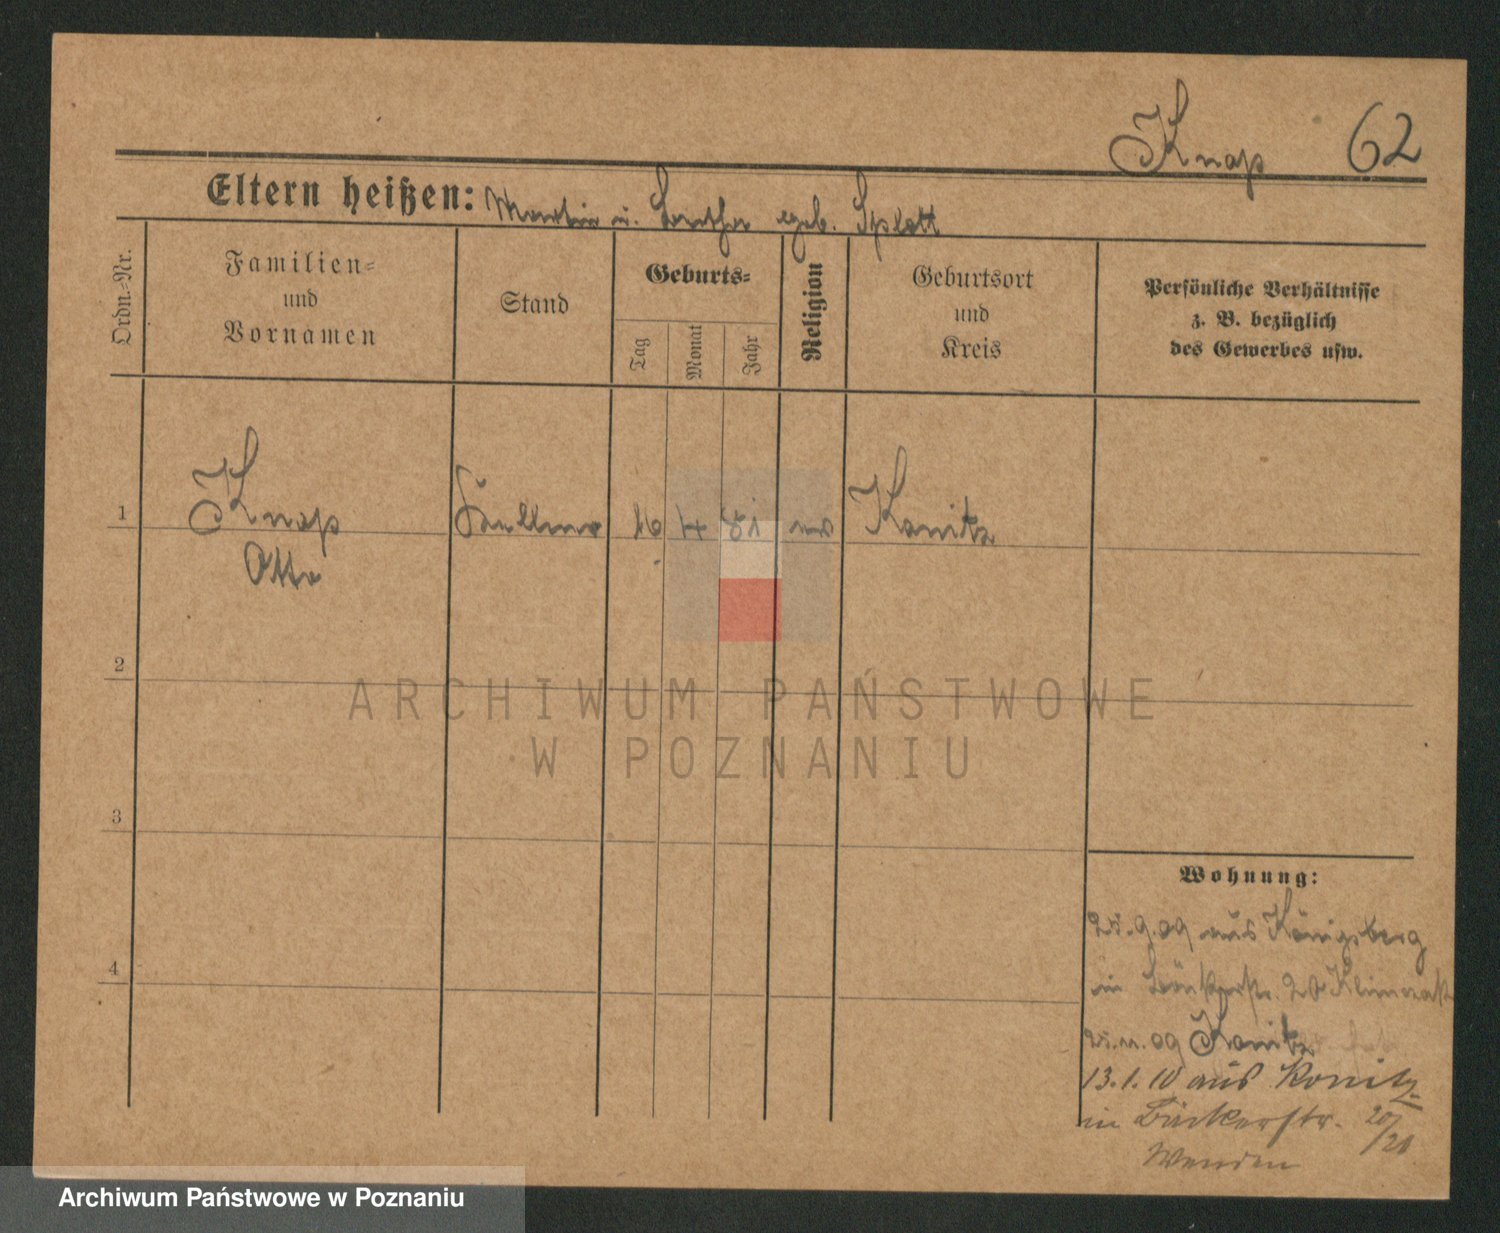 Knap 62
Eltern heißen: Martin u. geb. Splett
Ordn.-Nr.
Familien-
und
Vornamen
Stand
Geburts-
Tag
Monat
Jahr
Religion
Geburtsort
und
Kreis
Persönliche Verhältnisse
z. B. bezüglich
des Gewerbes usw.
1 Knap Kellner 16 4 81 Konitz
Otto
2
3
4
Wohnung:
25.9.09 aus Königsberg
in Bäckerstr. 20
Konitz
13.1.10 aus Konitz
in Bäckerstr.
ARCHIWUM PAŃSTWOWE
W POZNANIU
Archiwum Państwowe w Poznaniu